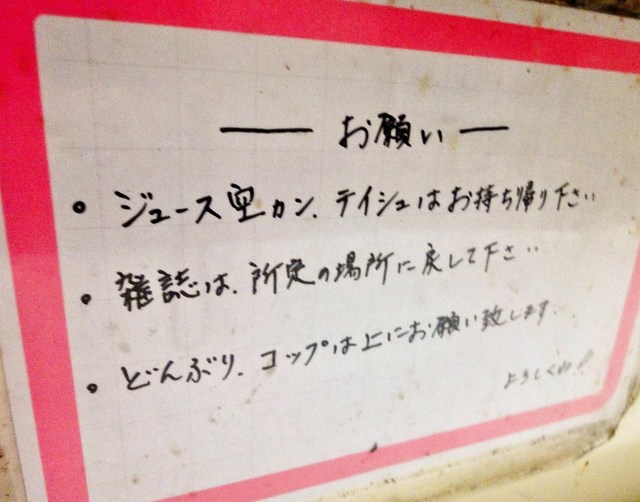 ── お願い ──
• ジュース空カン、テイシュはお持ち帰り下さい
• 雑誌は、所定の場所に戻して下さい
• どんぶり、コップは上にお願い致します。
よろしくね!